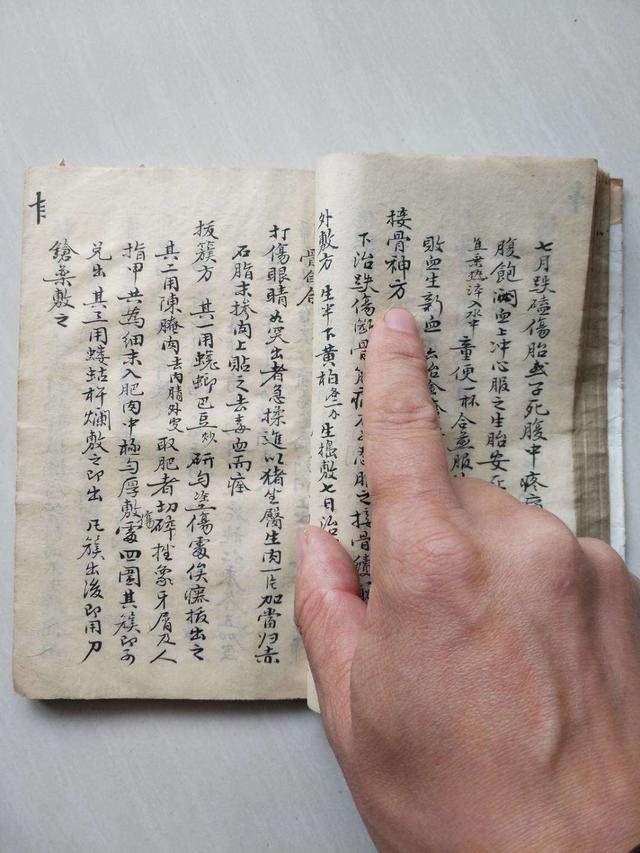 七月跌磕傷胎或子死腹中疼
腹飽滿血上冲心服之生胎安死
热淬入水中 童便一杯 合煎服
敗血生新血
接骨神方
下治跌傷斷骨筋痛不可忍服之接骨續
外敷方 生半下黄柏各二分生搗敷七日治
骨自合
打傷眼睛如突出者急揉進以猪坐臀生肉一片加當归赤
石脂末摻肉上貼之去毒血而痊
拔簇方 其一用蜣螂巴豆炒研匀塗傷處俟癢拔出之
其二用陳腌肉去肉腊外皮取肥者切碎挫象牙屑及人
指甲共為細末入肥肉中極匀厚敷傷處四圍其簇即可
兑出 其三用螻蛄杵爛敷之即出 凡簇出後即用刀
鎗藥敷之